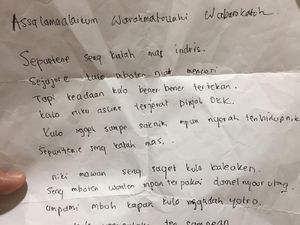 Assalamualaikum Warahmatouahi Wabarokatoh.
Sepuntene seng katah mas indris.
Sejatose kulo mboten niat mencuri
Tapi keadaan kulo bener bener tertekan.
kulo niku asline terjerat Pinjol DKK.
Kulo nggeh sampe saknik, mpun nyerah ten hidup niki
Sepuntene seng katah mas..
niki mawon seng saget kulo baleaken.
Seng mboten wonten mpun terpakai damel nyaur utang.
umpami mboh kapan kulo nggadah yotro.